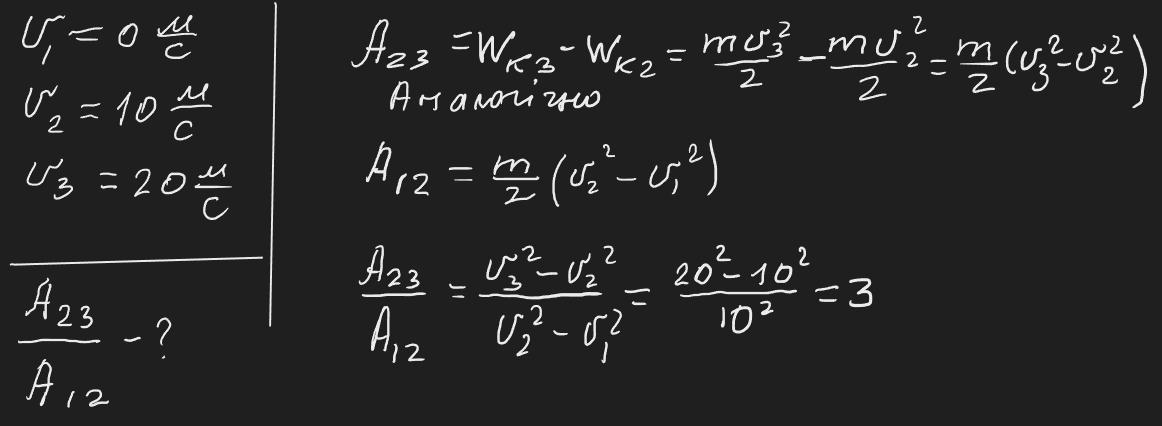 υ₁ = 0 м/с
υ₂ = 10 м/с
υ₃ = 20 м/с
A₂₃/A₁₂ - ?
A₂₃ = Wк₃ - Wк₂ = mυ₃²/2 - mυ₂²/2 = m/2 (υ₃² - υ₂²)
Аналогічно
A₁₂ = m/2 (υ₂² - υ₁²)
A₂₃/A₁₂ = (υ₃² - υ₂²)/(υ₂² - υ₁²) = (20² - 10²)/10² = 3